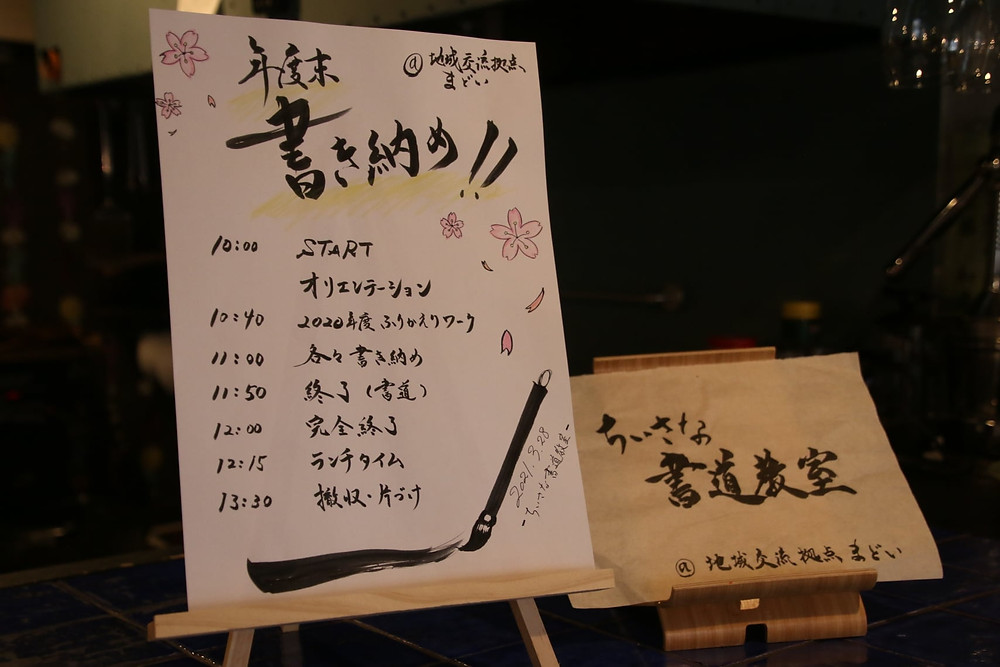 年度末
@地域交流拠点
まどい
書き納め!!
10:00 START
オリエンテーション
10:40 2020年度ふりかえりワーク
11:00 各々書き納め
11:50 終了(書道)
12:00 完全終了
12:15 ランチタイム
13:30 撤収・片づけ
2021.3.28
-ちいさな書道教室-
ちいさな
書道教室
@地域交流拠点まどい